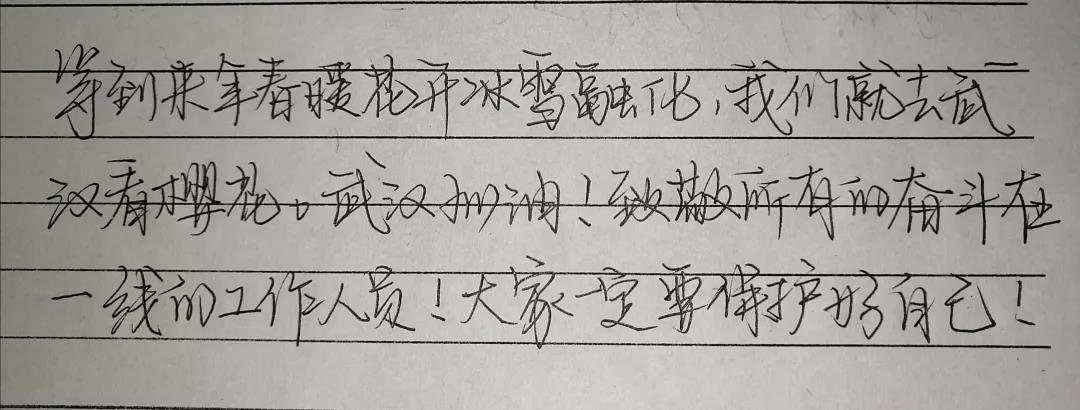 等到来年春暖花开冰雪融化,我们就去武
汉看樱花。武汉加油!致敬所有的奋斗在
一线的工作人员!大家一定要保护好自己!